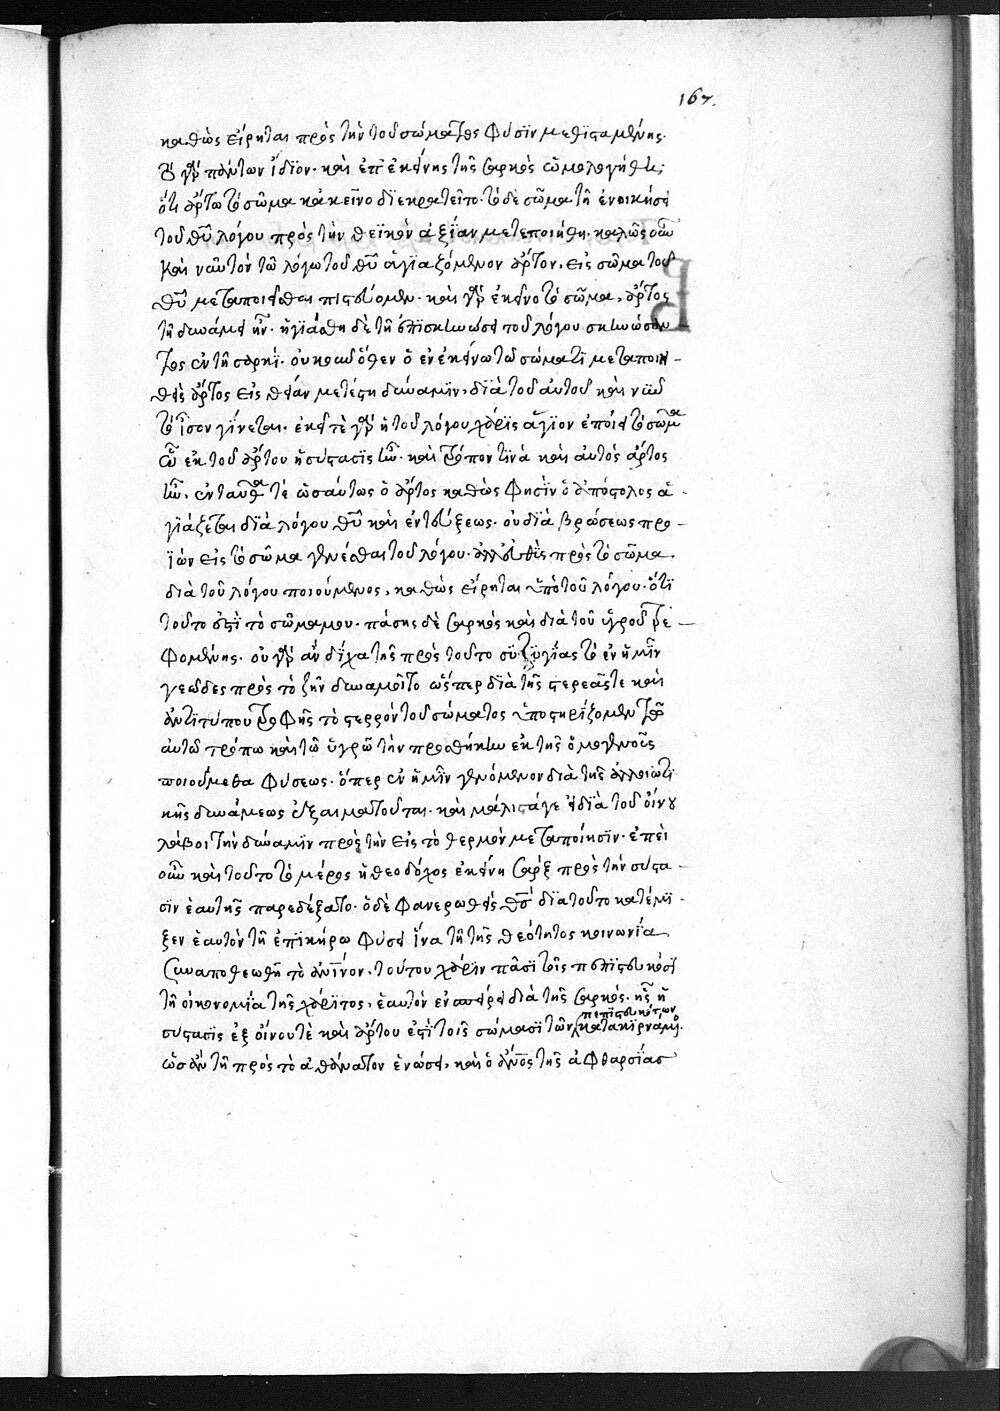 167.
καθὼς εἴρηται πρὸς τὴν τοῦ σώματος φύσιν μεθισταμένης·
ὃ γὰρ πάντων ἴδιον· καὶ ἐπ' ἐκείνης τῆς σαρκὸς ὡμολογήθη·
ὅτι ἄρτω τὸ σῶμα κἀκεῖνο διεκρατεῖτο· τὸ δὲ σῶμα τῆ ἐνοικήσει
τοῦ θῦ λόγου πρὸς τὴν θεϊκὴν ἀξίαν μετεποιήθη· καλῶς οὖν
καὶ νῦν τὸν τῶ λόγω τοῦ θῦ ἁγιαζόμενον ἄρτον, εἰς σῶμα τοῦ
θῦ μεταποιεῖσθαι πιστεύομεν· καὶ γὰρ ἐκεῖνο τὸ σῶμα, ἄρτος
τῆ δυνάμει ἦν· ἡγιάσθη δὲ τῆ ἐπισκηνώσει τοῦ λόγου σκηνώσαν
τος ἐν τῆ σαρκί· οὐκοῦν ὅθεν ὁ ἐν ἐκείνω τῶ σώματι μεταποιη-
θεὶς ἄρτος εἰς θείαν μετέστη δύναμιν, διὰ τοῦ αὐτοῦ καὶ νῦν
τὸ ἴσον γίνεται· ἐκεῖ τε γὰρ ἡ τοῦ λόγου χάρις ἅγιον ἐποίει τὸ σῶμα
ὧ ἐκ τοῦ ἄρτου ἡ σύστασις ἦν· καὶ τρόπον τινὰ καὶ αὐτὸς ἄρτος
ἦν, ἐνταῦθα τε ὡσαύτως ὁ ἄρτος καθώς φησὶν ὁ ἀπόστολος ἁ-
γιάζεται διὰ λόγου θῦ καὶ ἐντεύξεως· οὐ διὰ βρώσεως προ-
ϊὼν εἰς τὸ σῶμα γενέσθαι τοῦ λόγου· ἀλλ' εὐθὺς πρὸς τὸ σῶμα
διὰ τοῦ λόγου ποιούμενος, καθὼς εἴρηται ὑπὸ τοῦ λόγου· ὅτι
τοῦτο ἐστὶ τὸ σῶμα μου· πάσης δὲ σαρκὸς καὶ διὰ τοῦ ὑγροῦ τρε-
φομένης· οὐ γὰρ ἂν δίχα τῆς πρὸς τοῦτο συζυγίας τὸ ἐν ἡμῖν
γεῶδες πρὸς τὸ ζῆν δυναμοῖτο ὥσπερ διὰ τῆς στερεᾶς τε καὶ
ἀντιτύπου τροφῆς τὸ στερρὸν τοῦ σώματος ὑποστηρίζομεν τῶ
αὐτῶ τρόπω καὶ τῶ ὑγρῶ τὴν προσθήκην ἐκ τῆς ὁμογενοῦς
ποιούμεθα φύσεως· ὅπερ ἐν ἡμῖν γενόμενον διὰ τῆς ἀλλοιωτι
κῆς δυνάμεως ἐξαιματοῦται· καὶ μάλιστά γε εἰ διὰ τοῦ οἴνου
λάβοι τὴν δύναμιν πρὸς τὴν εἰς τὸ θερμὸν μεταποίησιν· ἐπεὶ
οὖν καὶ τοῦτο τὸ μέρος ἡ θεοδόχος ἐκείνη σὰρξ πρὸς τὴν σύστα-
σιν ἑαυτῆς παρεδέξατο· ὁ δὲ φανερωθεὶς θσ διὰ τοῦτο κατέμι-
ξεν ἑαυτὸν τῆ ἐπικήρω φύσει ἵνα τῆ τῆς θεότητος κοινωνία
συναποθεωθῆ τὸ ἀνινον· τούτου χάριν πᾶσι τοῖς πεπιστευκόσι
τῆ οἰκονομία τῆς χάριτος, ἑαυτὸν ἐνσπείρει διὰ τῆς σαρκὸς· ἧς ἡ
σύστασις ἐξ οἴνου τὲ καὶ ἄρτου ἐστὶ τοῖς σώμασι τῶν πεπιστευκότων κατακιρνάμενος·
ὡς ἂν τῆ πρὸς τὸ ἀθάνατον ἑνώσει, καὶ ὁ ἄνος τῆς ἀφθαρσίας